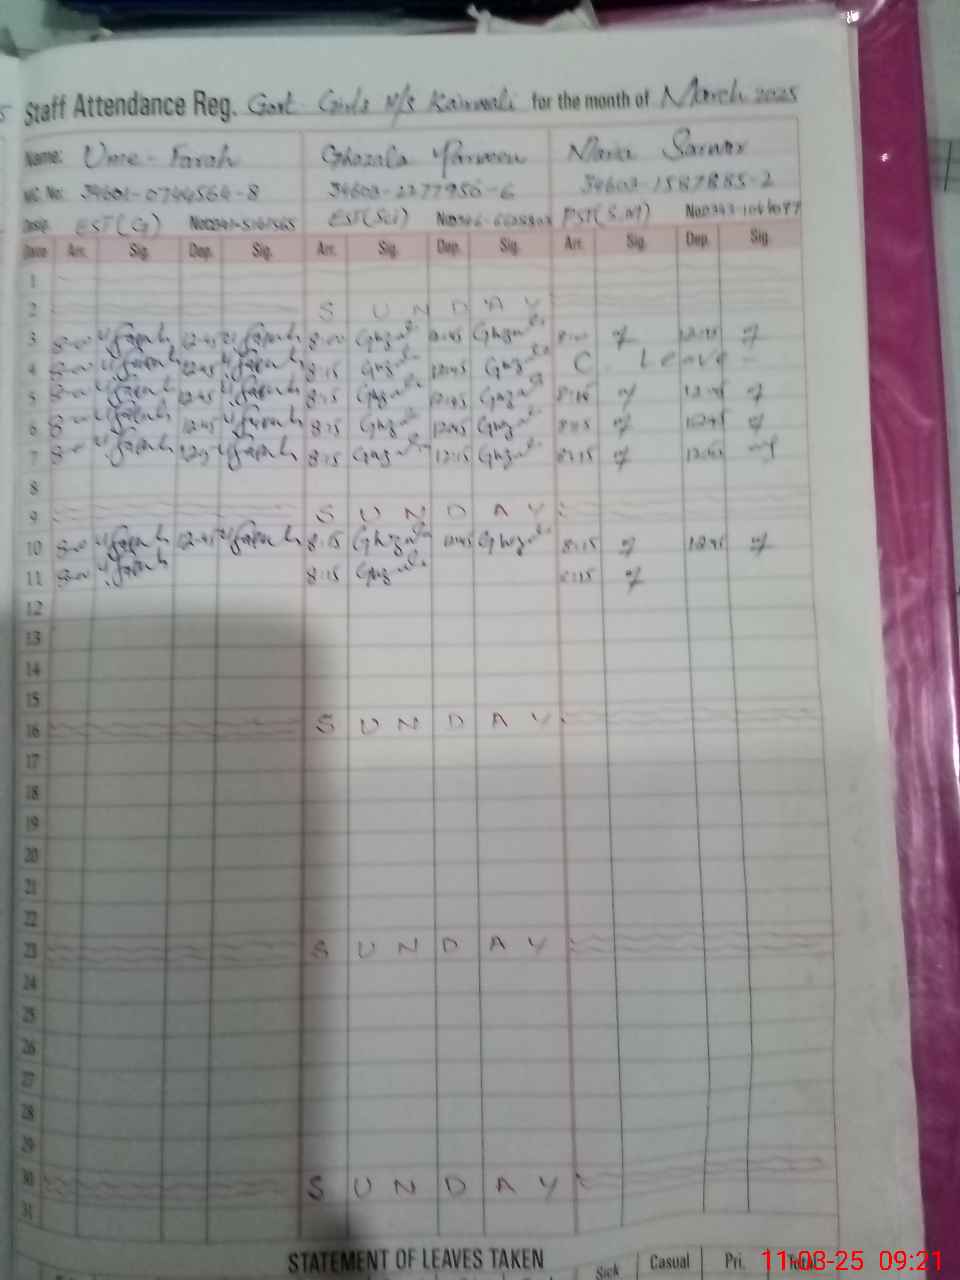 Staff Attendance Reg. Govt Girls M/S Kainwali for the month of March 2025
Name: Ume-Farah Ghazala Parveen Maria Sarwar
NIC No: 34601-0744564-8 34603-2277956-6 34603-1587885-2
Desig. EST(G) EST(Sci) PST(S.M)
Date Arr. Sig. Dep. Sig. Arr. Sig. Dep. Sig. Arr. Sig. Dep. Sig.
1
2 SUNDAY
3 8-00 U.Farah 12-45 U.Farah 8:00 Ghazala 12:45 Ghazala 8:00 12:45
4 8-00 U.Farah 12-45 U.Farah 8:15 Ghazala 12:45 Ghazala C. Leave -
5 8-00 U.Farah 12-45 U.Farah 8:15 Ghazala 12:45 Ghazala 8:15 12:45
6 8-00 U.Farah 12-45 U.Farah 8:15 Ghazala 12:45 Ghazala 8:15 12:45
7 8-00 U.Farah U.Farah 8:15 Ghazala 12:15 Ghazala 8:15
8
9 SUNDAY
10 8-00 U.Farah 12-45 U.Farah 8:15 Ghazala 12:45 Ghazala 8:15 12:45
11 8-00 U.Farah 8:15 Ghazala 8:15
12
13
14
15
16 SUNDAY
17
18
19
20
21
22
23 SUNDAY
24
25
26
27
28
29
30 SUNDAY
31
STATEMENT OF LEAVES TAKEN
Sick Casual Pri. Total
11-03-25 09:21